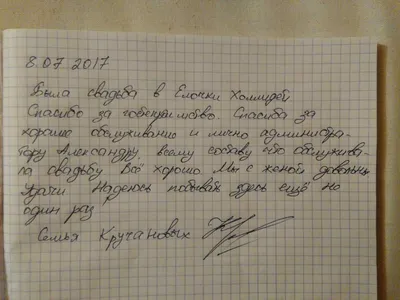 8.07 2017
Была свадьба в Елочки Холлидей
Спасибо за гостеприимство. Спасиба за
хорошее обслуживание и лично администра-
тору Александру, всему составу кто обслужива-
ла свадьбу Всё хорошо Мы с женой довольны
Удачи Надеюсь побывать здесь ещё не
один раз
Семья Кручановых